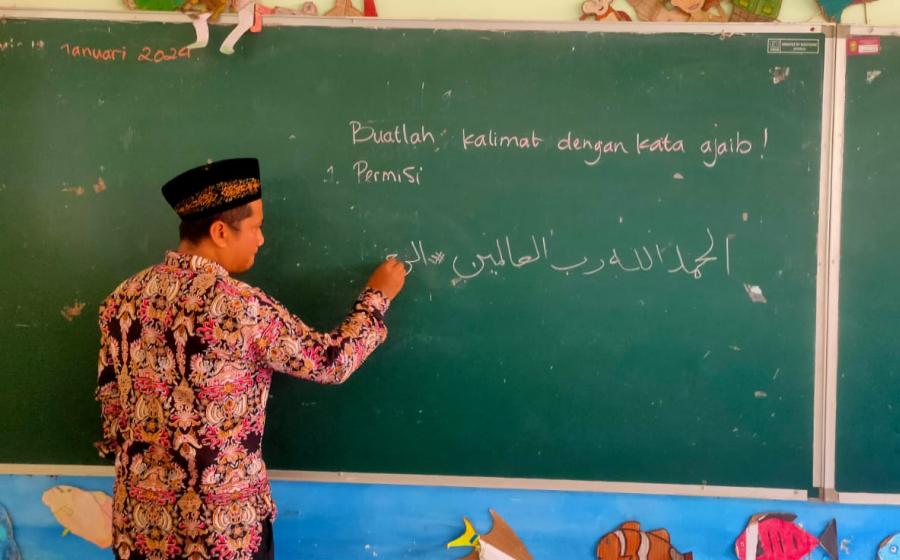 Januari 2024
Buatlah kalimat dengan kata ajaib!
1. Permisi
الحمد الله رب العالمين * الرح